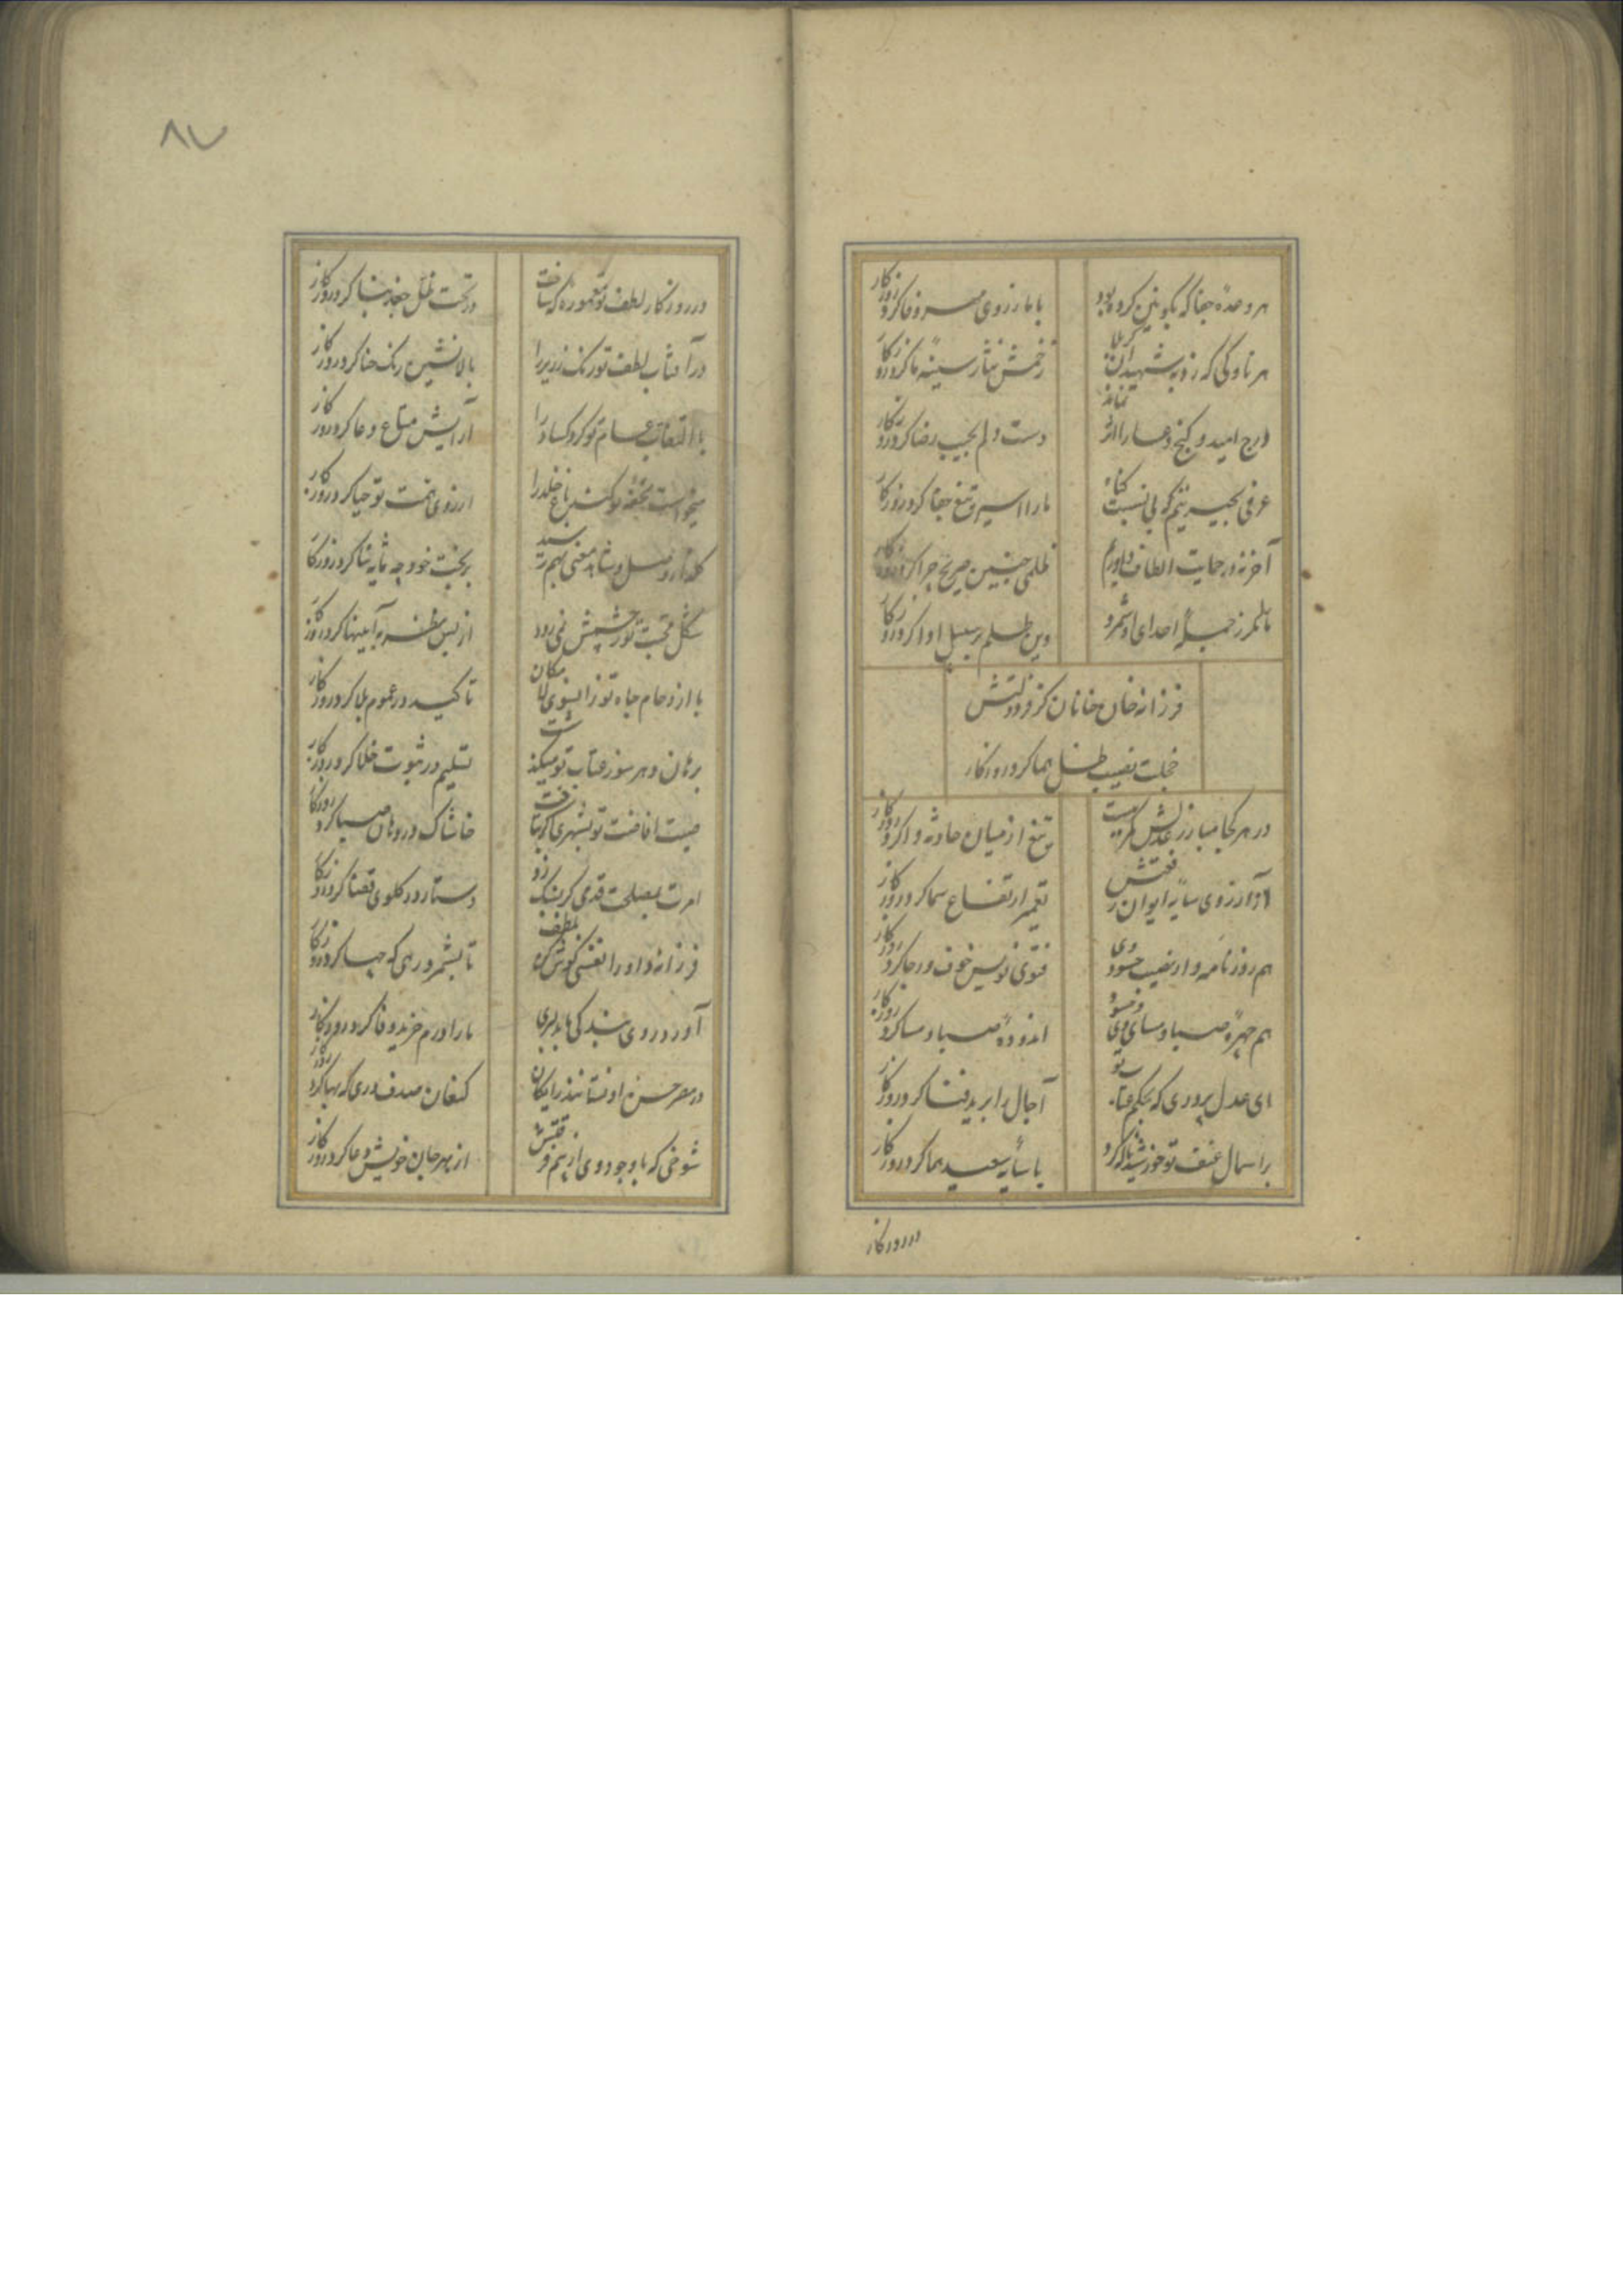 هر وعدهٔ جفا که بکونین کرده بود
با ما ز روی مهر و وفا کرد روزگار
هر ناوکی که زد به شهیدان کربلا
زخمش نثار سینهٔ ما کرد روزگار
درج امید و گنج دعا را اثر نماند
دست دلم بجیب رضا کرد روزگار
عرفی بحیرتم که بی نسبت گناه
ما را اسیر تیغ جفا کرد روزگار
آخر نه در حمایت الطاف داورم
ظلمی چنین صریح چرا کرد روزگار
مانا مرا ز جملهٔ اعدای او شمرد
وین ظلم بر سبیل ادا کرد روزگار
فرزانه خان خانان کز فر دولتش
خجلت نصیب ظل هما کرد روزگار
در هر کجا مبارز عدلش کمر ببست
تیغ از میان حادثه وا کرد روزگار
از آرزوی سایهٔ ایوان رفعتش
تعمیر ارتفاع سما کرد روزگار
هم روزنامه وار نصیب حسود وی
فتوی نویس خوف و رجا کرد روزگار
هم چهرهٔ صباح و مسای حسود وی
اندودهٔ صباح و مسا کرد روزگار
ای عدل پروری که بحکم عتاب تو
آجال را برید فنا کرد روزگار
براسمال عنف تو خورشید را که کرد
با سایه سعید هما کرد روزگار
در روزگار
۸۷
در روزگار لطف تو معموره که ساخت
در تحت ظل جغد بنا کرد روزگار
در آفتاب لطف تو رنگ زریر را
بالانشین رنگ حنا کرد روزگار
با التفات عام تو کرد کساد را
آرایش متاع دعا کرد روزگار
میخواست تحفه تو کند باغ خلد را
از روی همت تو حیا کرد روزگار
بر تخت خود چه ثنا کرد روزگار
شکل محبت تو ز چشمش نمی رود
از بس نظر به آینها کرد روزگار
با ازدحام جاه تو زانسوی لامکان
تاکید در عموم بلا کرد روزگار
تسلیم در ثبوت خلا کرد روزگار
صیت افاضت تو بشهری که تافت
خاشاک در دهان صبا کرد روزگار
امرت بمصلحت قدمی کز بسک زد
دستار در گلوی قضا کرد روزگار
فرزانه داورا نفسی گوش کن بلطف
تا بشمرد رهی که چها کرد روزگار
آورد روی بندگی ما بدلبری
ما را درم خرید وفا کرد روزگار
در مصر حسن او نستانند رایگان
کنعان صدف دری که بها کرد روزگار
شوخی که با وجود وی از بیم فتنه‌اش
از بهر جان خویش دعا کرد روزگار